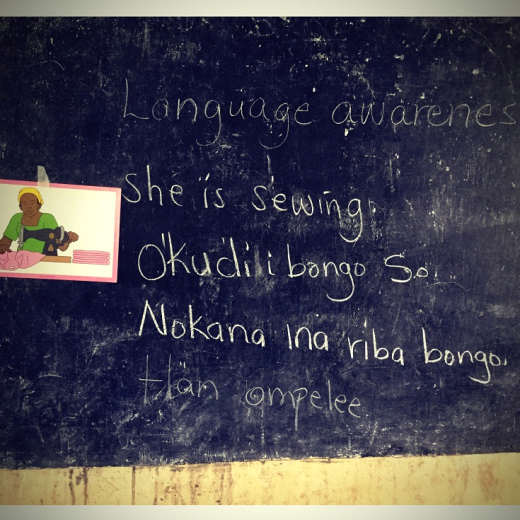 Language awarenes
She is sewing.
O'kudili bongo So.
Nokana ina riba bongo.
Hän ompelee